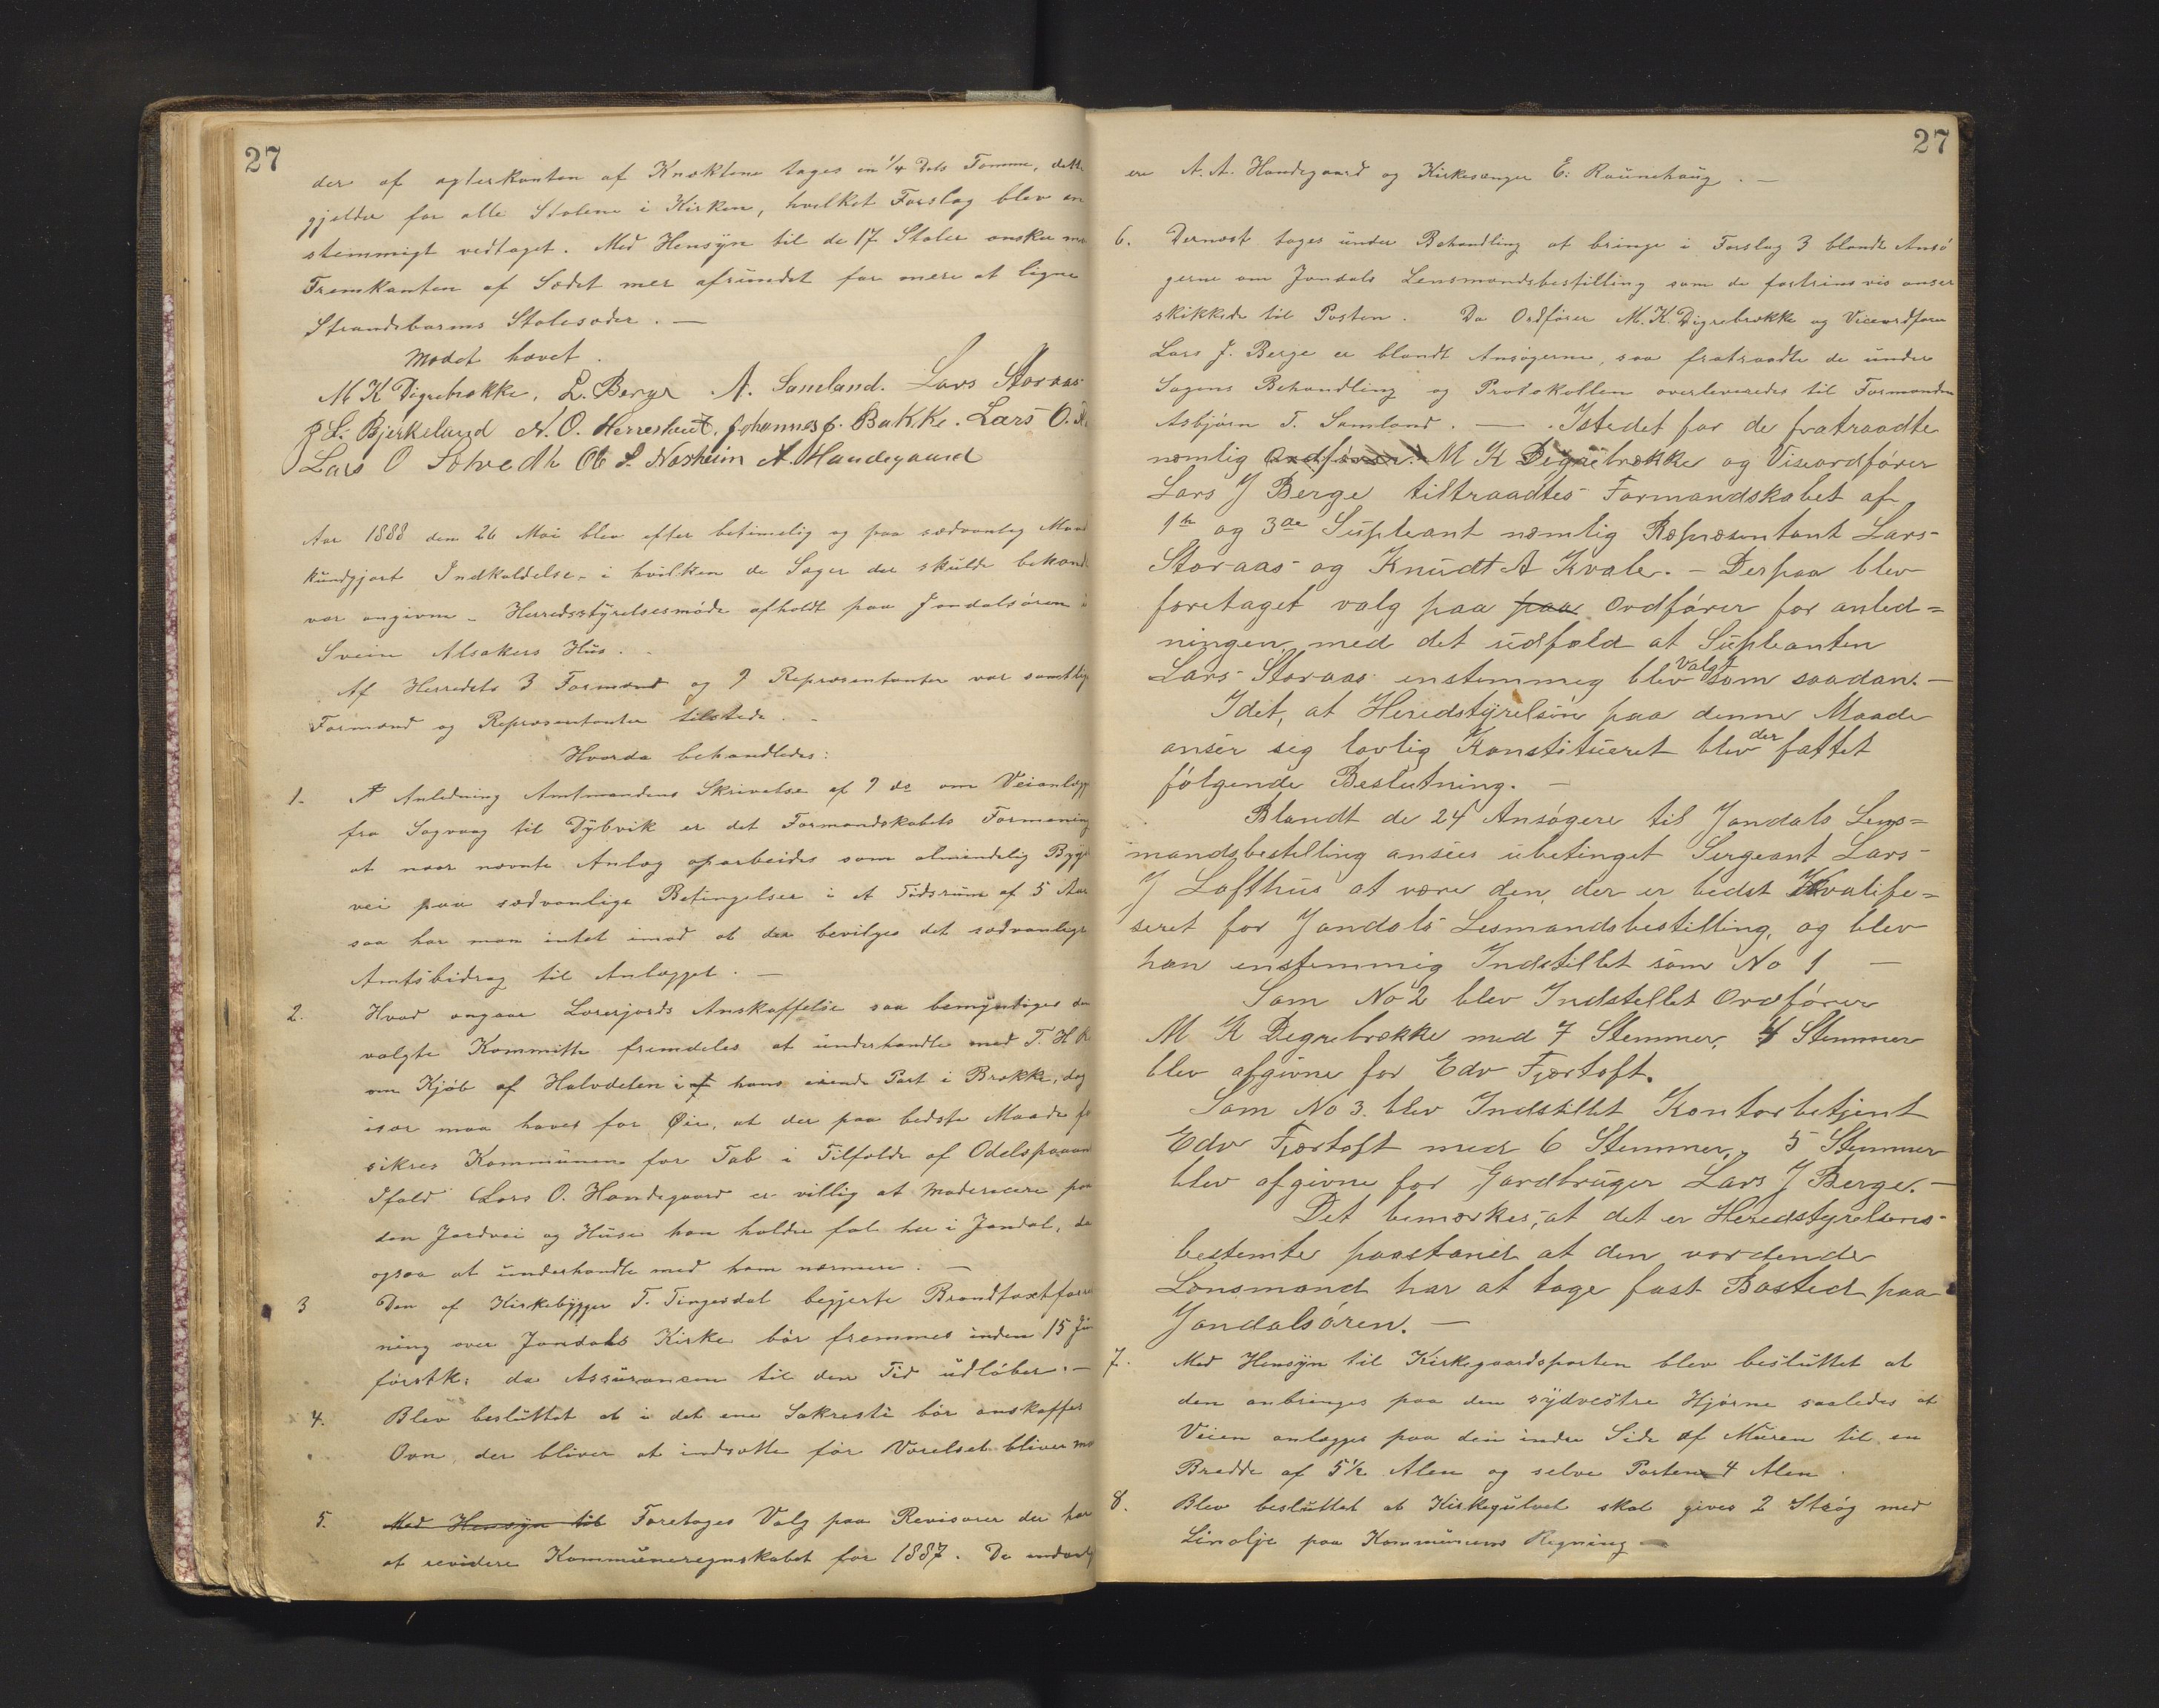 27
der af agterkanten af Knæktene tages en 1/4 Dels Tomme, dette
gjælder for alle Stolene i Kirken, hvilket Forslag blev en
stemmigt vedtaget. Med Hensyn til de 17 Stoler ønsker
Fremkanten af Sædet mer afrundet for mere at ligne
Strandebarms Stolesæder. —
Mødet hævet.
M K Digrebrække, L. Berge A. Samland. Lars Storaas
L. Bjerkeland N. O. Herrestveit, Johannes J. Bakke. Lars O.
Lars O Solvedt Ole S. Næsheim A. Handegaard
Aar 1888 den 26 Mai blev efter betimelig og paa sædvanlig
kundgjort Indkaldelse - i hvilken de Sager der skulde
var angivne - Herredsstyrelsesmøde afholdt paa Jondalsøren i
Svein Alsakers Hus.
Af Herredets 3 Formænd og 9 Repræsentanter var samtlige
Formænd og Repræsentanter tilstede. -
Hvorda behandledes:
1. I Anledning Amtmandens Skrivelse af 9 ds om Veianlægget
fra Sagvaag til Dybvik er det Formandskabets Formening
at naar nævnte Anlæg oparbeides som almindelig Bygde
vei paa sædvanlige Betingelser i et Tidsrum af 5 Aar
saa har man intet imod at der bevilges det sædvanlige
Amtsbidrag til Anlægget. —
2. Hvad angaar Lærerjords Anskaffelse saa bemyndiges den
valgte Kommitte fremdeles at underhandle med T. H
om Kjøb af Halvdelen i af hans eiende Part i Brække, dog
især maa haves for Øie, at der paa bedste Maade
sikres Kommunen for Tab i Tilfælde af Odelspaaan
Ifald Lars O. Handegaard er villig at moderere paa
den Jordvei og Huse han holder fal her i Jondal, da
ogsaa at underhandle med ham nærmere. —
3 Den af Kirkebygger T. Tingesdal begjerte Brandtaxtforret
ning over Jondals Kirke bør fremmes inden 15 Juni
førstk: da Assurancen til den Tid udløber. —
4. Blev besluttet at i det ene Sakresti bør anskaffes
Ovn, der bliver at indsætte før Værelset bliver
5. Med Hensyn til Foretages Valg paa Revisorer der har
at revidere Kommuneregnskabet for 1887. De
27
ere A. A. Handegaard og Kirkesanger E: Raunehaug. —
6. Dernæst toges under Behandling at bringe i Forslag 3 blandt Ansø
gerne om Jondals Lensmandsbestilling som de fortrinsvis anser
skikkede til Posten. Da Ordfører M. K. Digrebrække og Viceordfører
Lars J. Berge er blandt Ansøgerne, saa fratraadte de under
Sagens Behandling og Protokollen overleveredes til Formanden
Asbjørn T. Samland. — . Istedet for de fratraadte
nemlig Ordfører M K Digrebrække og Viseordfører
Lars J Berge tiltraadtes Formandskabet af
1te og 3de Supleant nemlig Repræsentant Lars
Storaas og Knudt A Kvale. - Derpaa blev
foretaget valg paa paa Ordfører for anled=
ningen, med det udfald at Supleanten
Lars Storaas enstemmeg blev valgt som saadan. —
Idet, at Heredstyrelsen paa denne Maade
anser sig lovlig Konstitueret blev der fattet
følgende Beslutning. —
Blandt de 24 Ansøgere til Jondals Lens=
mandsbestelling ansees ubetinget Sergeant Lars
J Lofthus at være den, der er bedst Kvalife=
seret for Jondals Lesmandsbestilling, og blev
han enstemmig Indstillet som No 1 —
Som No 2 blev Indstellet Ordfører
M K Degrebrække med 7 Stemmer, 4 Stemmer
blev afgivne for Edv Fjørtoft.
Som No 3. blev Indstillet Kontorbetjent
Edv Fjørtoft med 6 Stemmer, 5 Stemmer
blev afgivne for Gardbruger Lars J Berge. —
Det bemærkes, at det er Heredstyrelsens
bestemte paastand at den vordende
Lensmand har at tage fast Bosted paa
Jondalsøren. —
7. Med Hensyn til Kirkegaardsporten blev besluttet at
den anbringes paa den sydvestre Hjørne saaledes at
Veien anlægges paa den indre Side af Muren til en
Bredde af 5 1/2 Alen og selve Porten 4 Alen.
8. Blev besluttet at Kirkegulvet skal gives 2 Strøg med
Linolje paa Kommunens Regning —